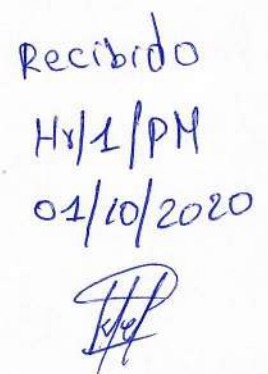 Recibido
Hr/1/PM
01/10/2020